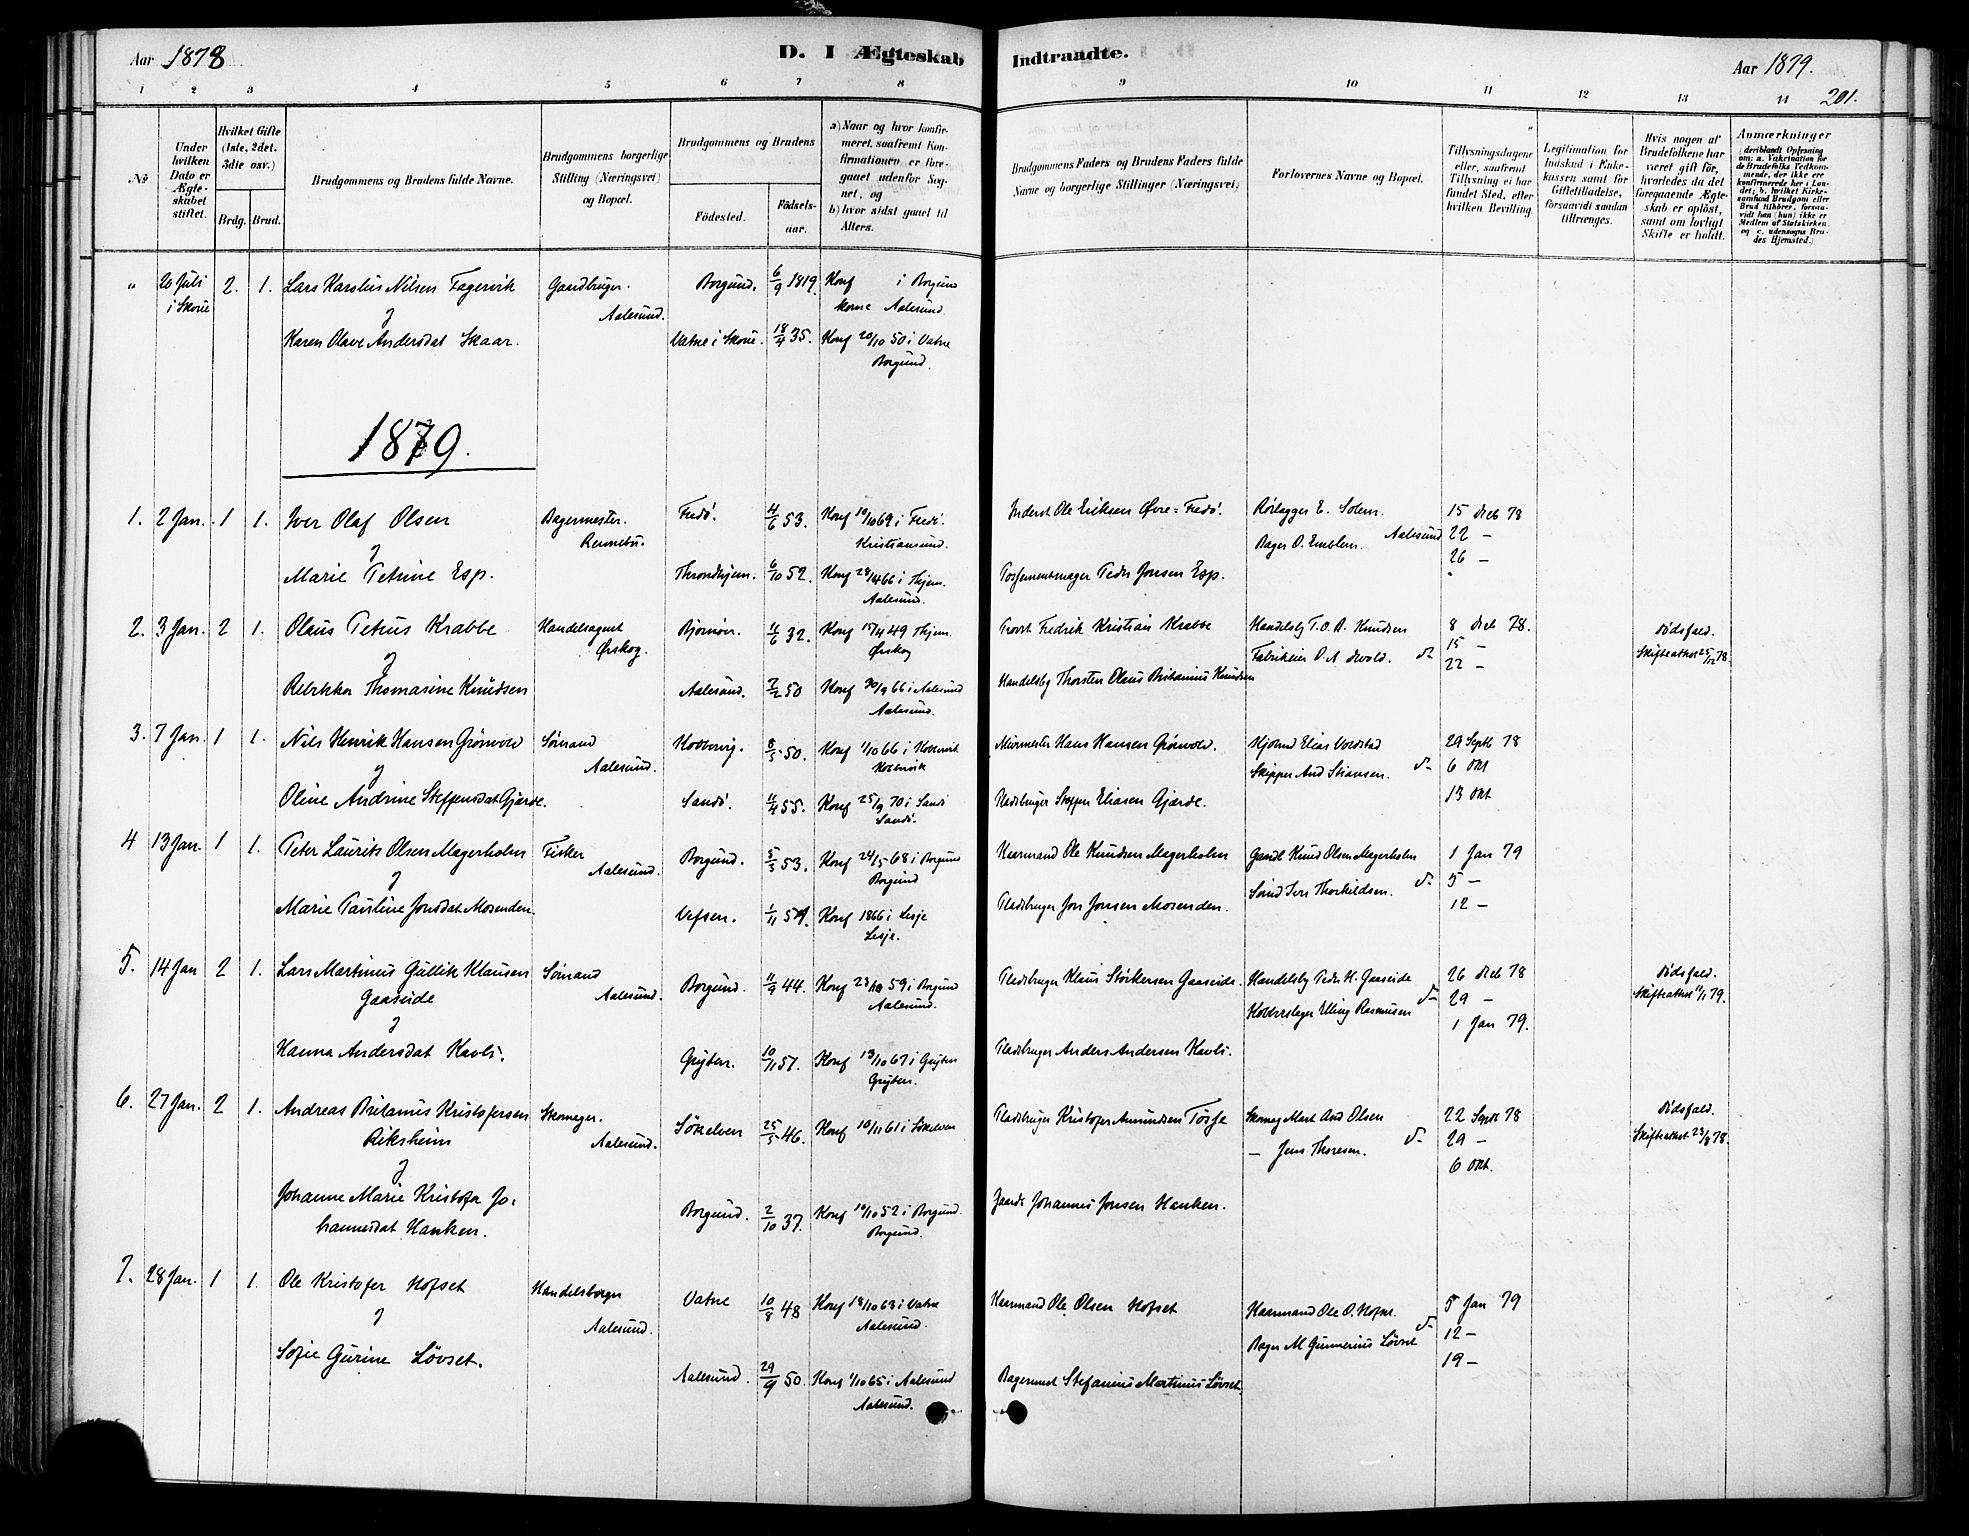 Aar 1878
D. I Ægteskab Indtraadte.
Aar 1879.
201.
1 2 3 4 5 6 7 8 9 10 11 12 13 14
No
Under hvilken Dato er Ægteskabet stiftet.
Hvilket Gifte (1ste, 2det, 3die osv.)
Brdg. Brud.
Brudgommens og Brudens fulde Navne.
Brudgommens borgerlige Stilling (Næringsvei) og Bopæl.
Brudgommens og Brudens
Födested.
Födselsaar.
a) Naar og hvor konfirmeret, saafremt Konfirmationen er foregaaet udenfor Sognet, og
b) hvor sidst gaaet til Alters.
Brudgommens Faders og Brudens Faders fulde Navne og borgerlige Stillinger (Næringsvei)
Forlovernes Navne og Bopæl.
Tillysningsdagene eller, saafremt Tillysning ei har fundet Sted, efter hvilken Bevilling.
Legitimation for Indskud i Enkekassen samt for Giftetilladelse, forsaavidt saadan tiltrænges.
Hvis nogen af Brudefolkene har været gift för, hvorledes da det foregaaende Ægteskab er oplöst, samt om lovligt Skifte er holdt.
Anmærkninger
(deriblandt Oplysning om: a. Vakcination for de Brudefolks Vedkommende, der ikke ere konfirmerede her i Landet; b. hvilket Kirkesamfund Brudgom eller Brud tilhörer, forsaavidt han (hun) ikke er Medlem af Statskirken og c. udensogns Brudes Hjemsted.)
" 20 Juli i Skoue 2. 1. Lars Karolus Nilsen Fagervik Gaardbruger. Aalesund. Borgund. 6/9 1819. Konf i Borgund
Aalesund
&
Karen Olave Andersdat Skaar. Vatne i Skoue. 18/4 35. Konf 20/10 50 i Vatne
Borgund.
1879.
1. 2 Jan. 1 1. Iver Olaf Olsen Bagermester. Fredö. 4/6 53. Konf 10/10 69 i Fredö. Inderst Ole Eriksen Øvre=Fredö. Rörlægger E. Solem. 15 Decb 78
Rennebu. Kristiansund. Bager O. Emblem. Aalesund 22 –
& 26 –
Marie Petrine Esp. Throndhjem. 6/10 52. Konf 28/4 66 i Thjem. Possementmager Peder Jonsen Esp.
Aalesund.
2. 3 Jan. 2 1. Olaus Petrus Krabbe Handelsagent Bjørnör. 11/6 32. Konf 15/4 49 Thjem. Provst Fredrik Kristian Krabbe Handelsbg T. O. B. Knudsen 8 Decb 78. Dödsfald.
Ørskog. Ørskog Fabrikeier O. A. Devold. do 15 – Skifteattest 25/12 78
& 22 –
Rebekka Thomasine Knudsen Aalesund. 7/2 50 Konf 30/9 66 i Aalesund Handelsbg Thorsten Olaus Britanius Knudsen
Aalesund.
3. 7 Jan. 1 1. Nils Henrik Hansen Grönvold Sömand Kobbervig. 8/5 50. Konf 1/10 66 i Kobbervik Murmester Hans Hansen Grönvold. Elias Voldstad 29 Septb 78
Aalesund. Kobbervik Skipper And Stiansen. do 6 Okt
& 13 Okt
Oline Andrine Steffensdat Gjærde. Sandö. 11/4 55. Konf 25/9 70 i Sandö Pladsbruger Steffen Eliasen Gjærde.
Sandö.
4 13 Jan. 1 1. Peter Laurits Olsen Magerholm Fisker Borgund. 5/5 53. Konf 24/5 68 i Borgund Kaarmand Ole Knudsen Magerholm Gaardb Knud Olsen Magerholm 1 Jan 79
Aalesund. Borgund Sömd Iver Thorkildsen. do 5 –
& 12 –
Marie Pauline Jonsdat Mosenden. Vefsen. 1/11 51. Konf 1866 i Lesje Pladsbruger Jon Jonsen Mosenden.
Lesje.
5. 14 Jan 2 1. Lars Martinus Gullik Klausen Sömand Borgund. 11/9 44. Konf 23/10 59 i Borgund Pladsbruger Klaus Störkersen Gaaseide. Handelsbg Peder K. Gaaseide 26 Decb 78 Dödsfald.
Gaaseide Aalesund. Aalesund. Kobberslager Elling Rasmusen do 29 – Skifteattest 11/1 79.
& 1 Jan 79.
Hanna Andersdat Kavli. Grytten. 10/11 57. Konf 13/10 67 i Grytten Pladsbruger Anders Andersen Kavli.
Grytten.
6. 27 Jan. 2 1. Andreas Britanus Kristofersen Skomager. Sökelven 25/5 46. Konf 10/11 61 i Sökelven Pladsbruger Kristofer Amundsen Tösse Skomag Mart And Olsen 22 Septb 78 Dödsfald.
Riksheim Aalesund. – Jens Thoresen. do 29 – Skifteattest 23/8 78.
& 6 Okt.
Johanne Marie Kristofa Jo- Borgund. 2/10 37. Konf 10/10 52 i Borgund. Gaardb Johannes Jonsen Hanken.
hannesdat Hanken. Borgund.
7. 28 Jan. 1 1. Ole Kristofer Hofset Handelsborger Vatne 10/8 48 Konf 18/10 63 i Vatne Kaarmand Ole Olsen Hofset Kaarmand Ole O. Hofset. 5 Jan 79
Aalesund. Aalesund. Bager M Gunnerius Lövset do 12 –
& 19 –
Sofie Gurine Lövset. Aalesund. 29/9 50. Konf 1/10 65 i Aalesund Bagermest Stefanius Martinus Lövset.
Aalesund.